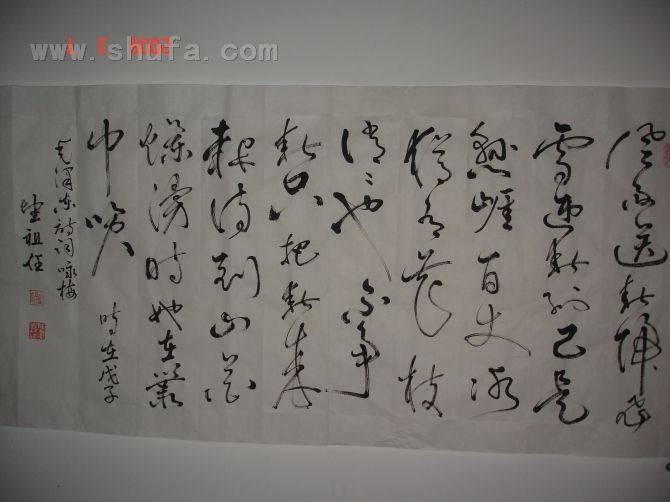 www.shufa.com
風雨送春歸飛
雪迎春到已是
懸崖百丈冰
猶有花枝
俏々也不争
春只把春来
报待到山花
爛漫時她在叢
中咲
時在戊子
毛泽东诗词咏梅
祖任